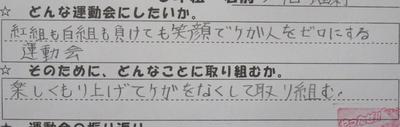 ☆ どんな運動会にしたいか。
紅組も白組も負けても笑顔でケガ人をゼロにする
運動会
☆ そのために、どんなことに取り組むか。
楽しくもり上げてケガをなくして取り組む。